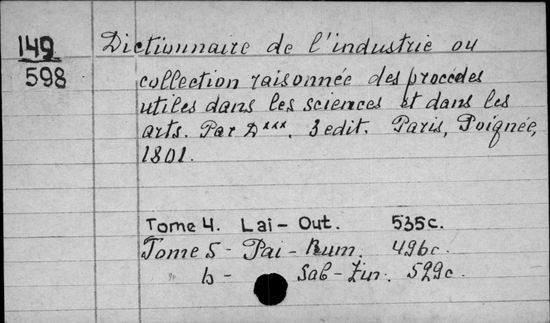 149
598
Dictionnaire de l'industrie ou
collection raisonnée des procédés
utiles dans les sciences et dans les
arts. Par D***. 3 edit. Paris, Poignée,
1801.
Tome 4. Lai - Out. 535c.
Tome 5 - Pai - Rum. 496c.
" 6 - Sab - Zin. 529c.